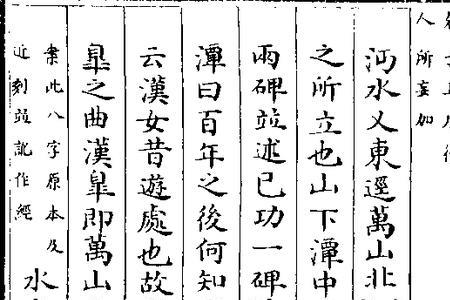 人所妄加
沔水又東逕萬山北
之所立也山下潭中
兩碑竝述已功一碑
潭曰百年之後何知
云漢女昔遊處也故
臯之曲漢臯即萬山
案此八字原本及
近刻竝訛作經
水